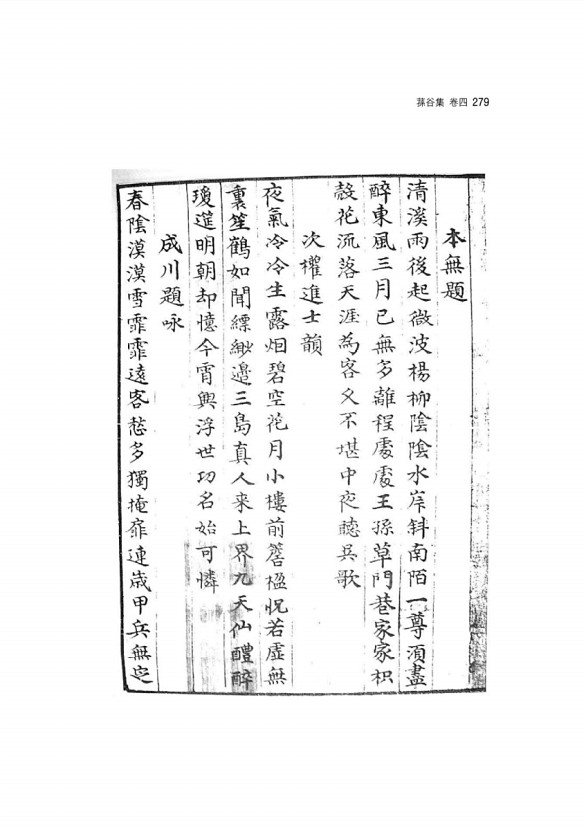 蓀谷集 卷四 279
本無題
清溪雨後起微波楊柳陰陰水岸斜南陌一尊須盡
醉東風三月已無多離程處處王孫草門巷家家枳
殼花流落天涯為客久不堪中夜聽吳歌
次權進士韻
夜氣冷冷生露烟碧空花月小樓前簷楹怳若虛無
裏笙鶴如聞縹緲邊三島真人来上界九天仙醴醉
瓊筵明朝却憶今霄興浮世功名始可憐
成川題咏
春陰漠漠雪霏霏遠客愁多獨掩扉連歲甲兵無定